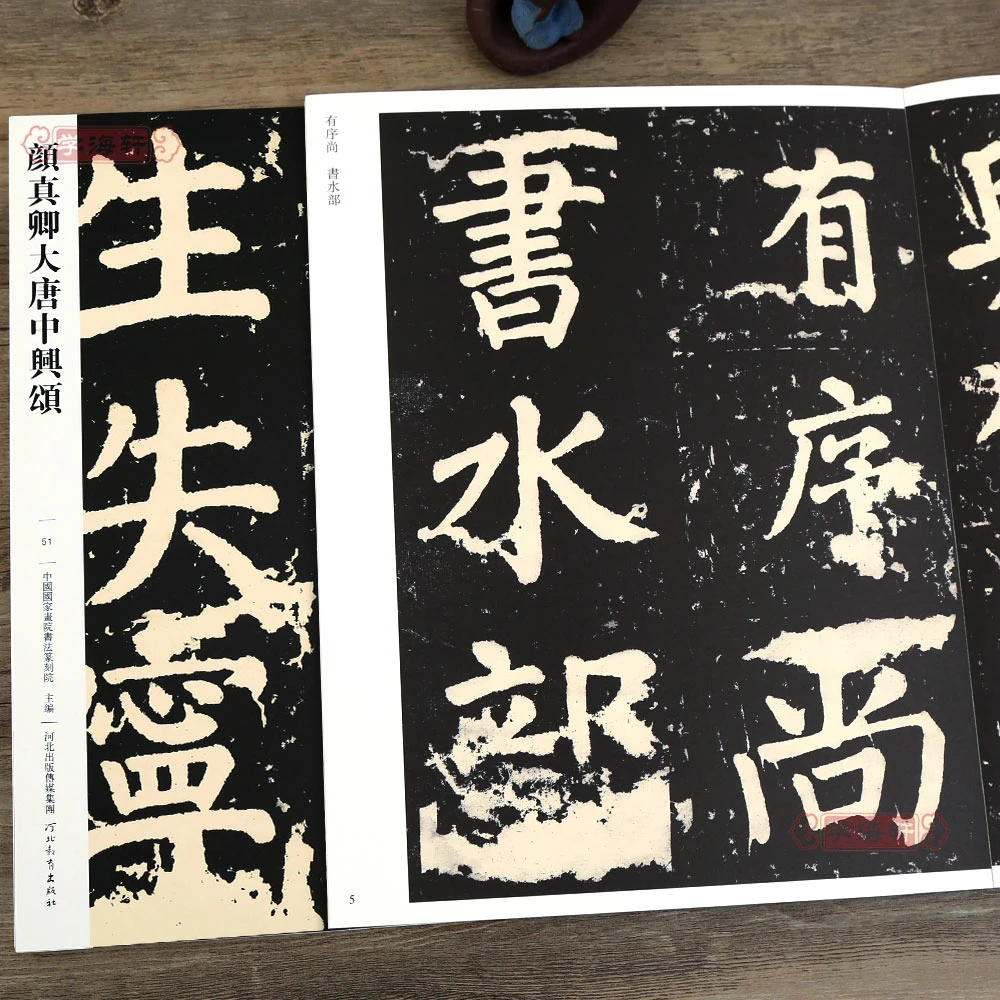 学海轩
顔真卿大唐中興頌
51
中國國家畫院書法篆刻院 主编
河北出版傳媒集團 河北教育出版社
生失寧
有序尚 書水部
有序尚
書水部
5
学海轩